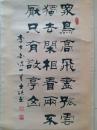 衆鳥高飛盡孤雲
獨去閒相看兩不
厭只有敬亭山